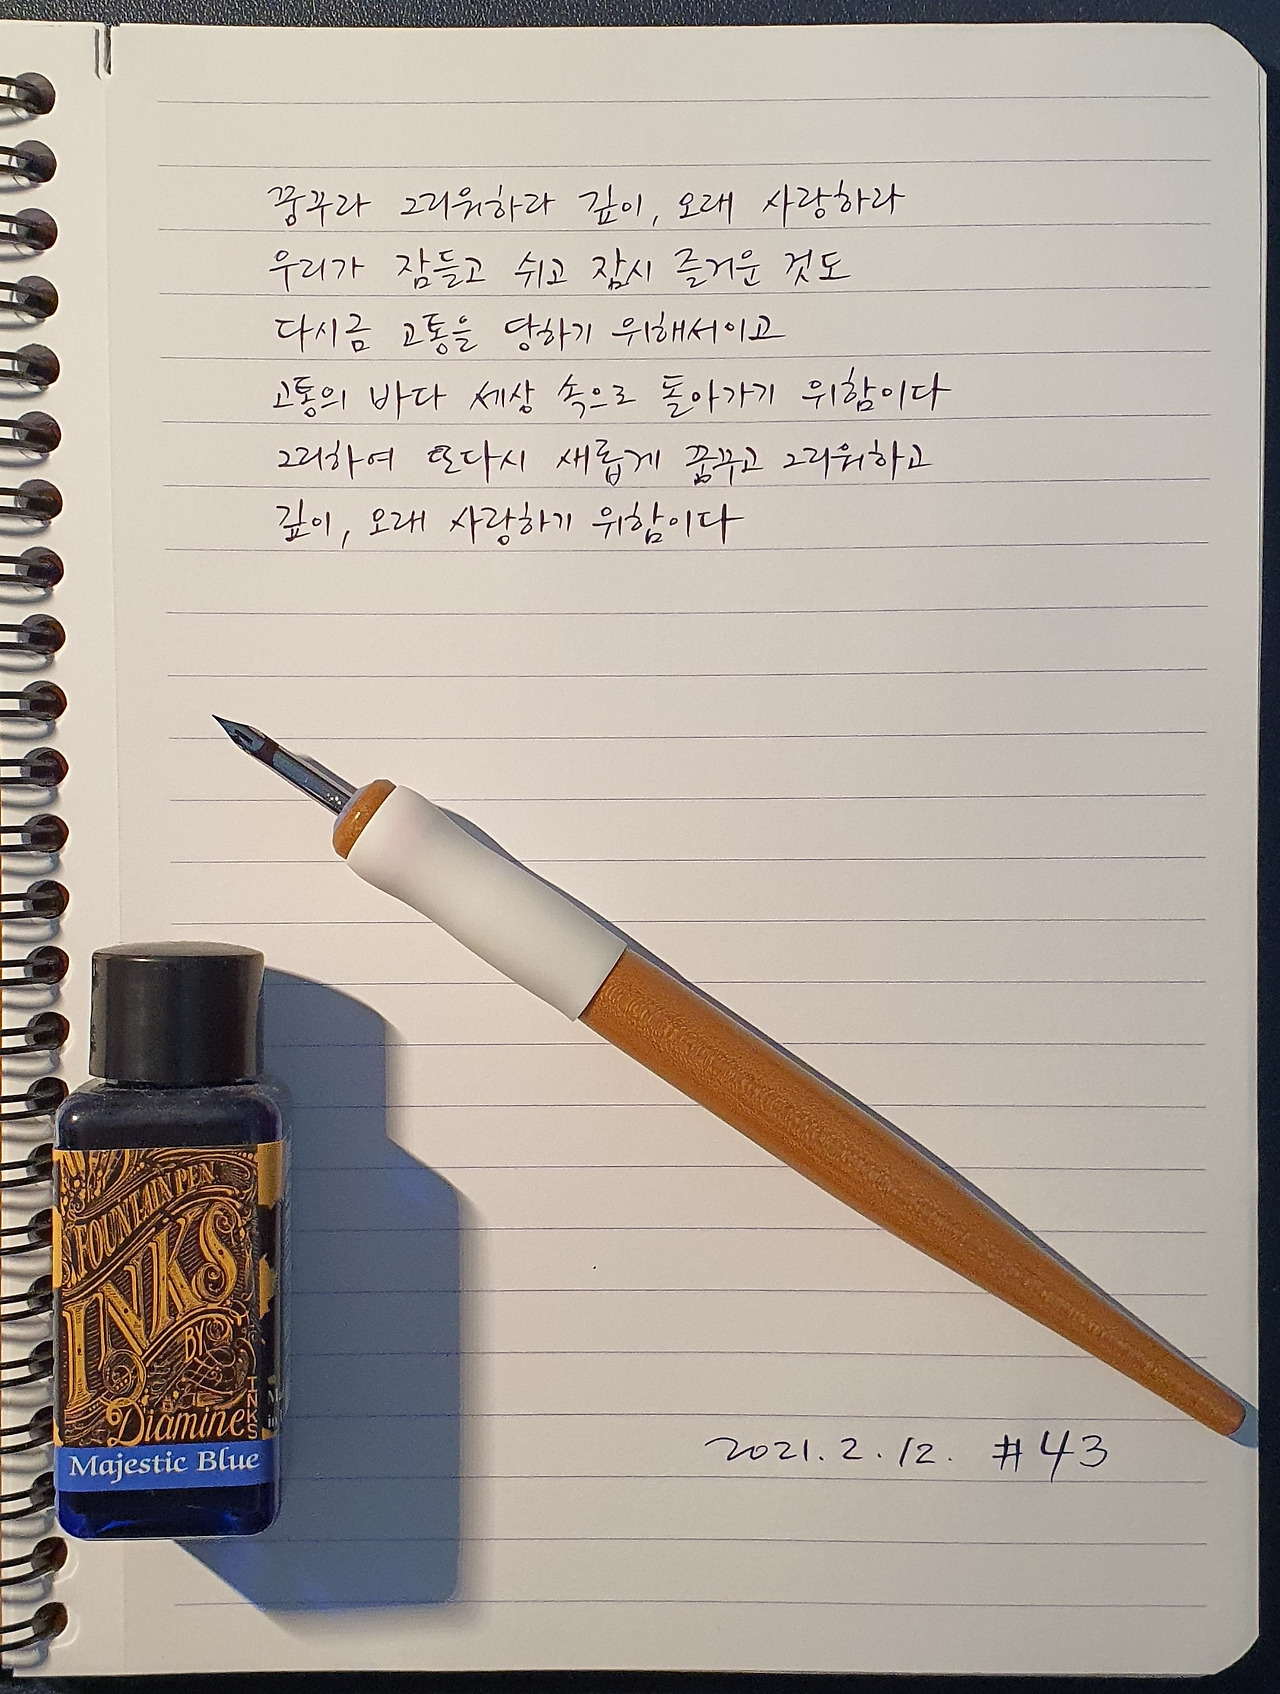 꿈꾸라 그리워하라 깊이, 오래 사랑하라
우리가 잠들고 쉬고 잠시 즐거운 것도
다시금 고통을 당하기 위해서이고
고통의 바다 세상 속으로 돌아가기 위함이다
그리하여 또다시 새롭게 꿈꾸고 그리워하고
깊이, 오래 사랑하기 위함이다
FOUNTAIN PEN
INKS
BY
Diamine
INKS
Majestic Blue
2021. 2. 12. #43